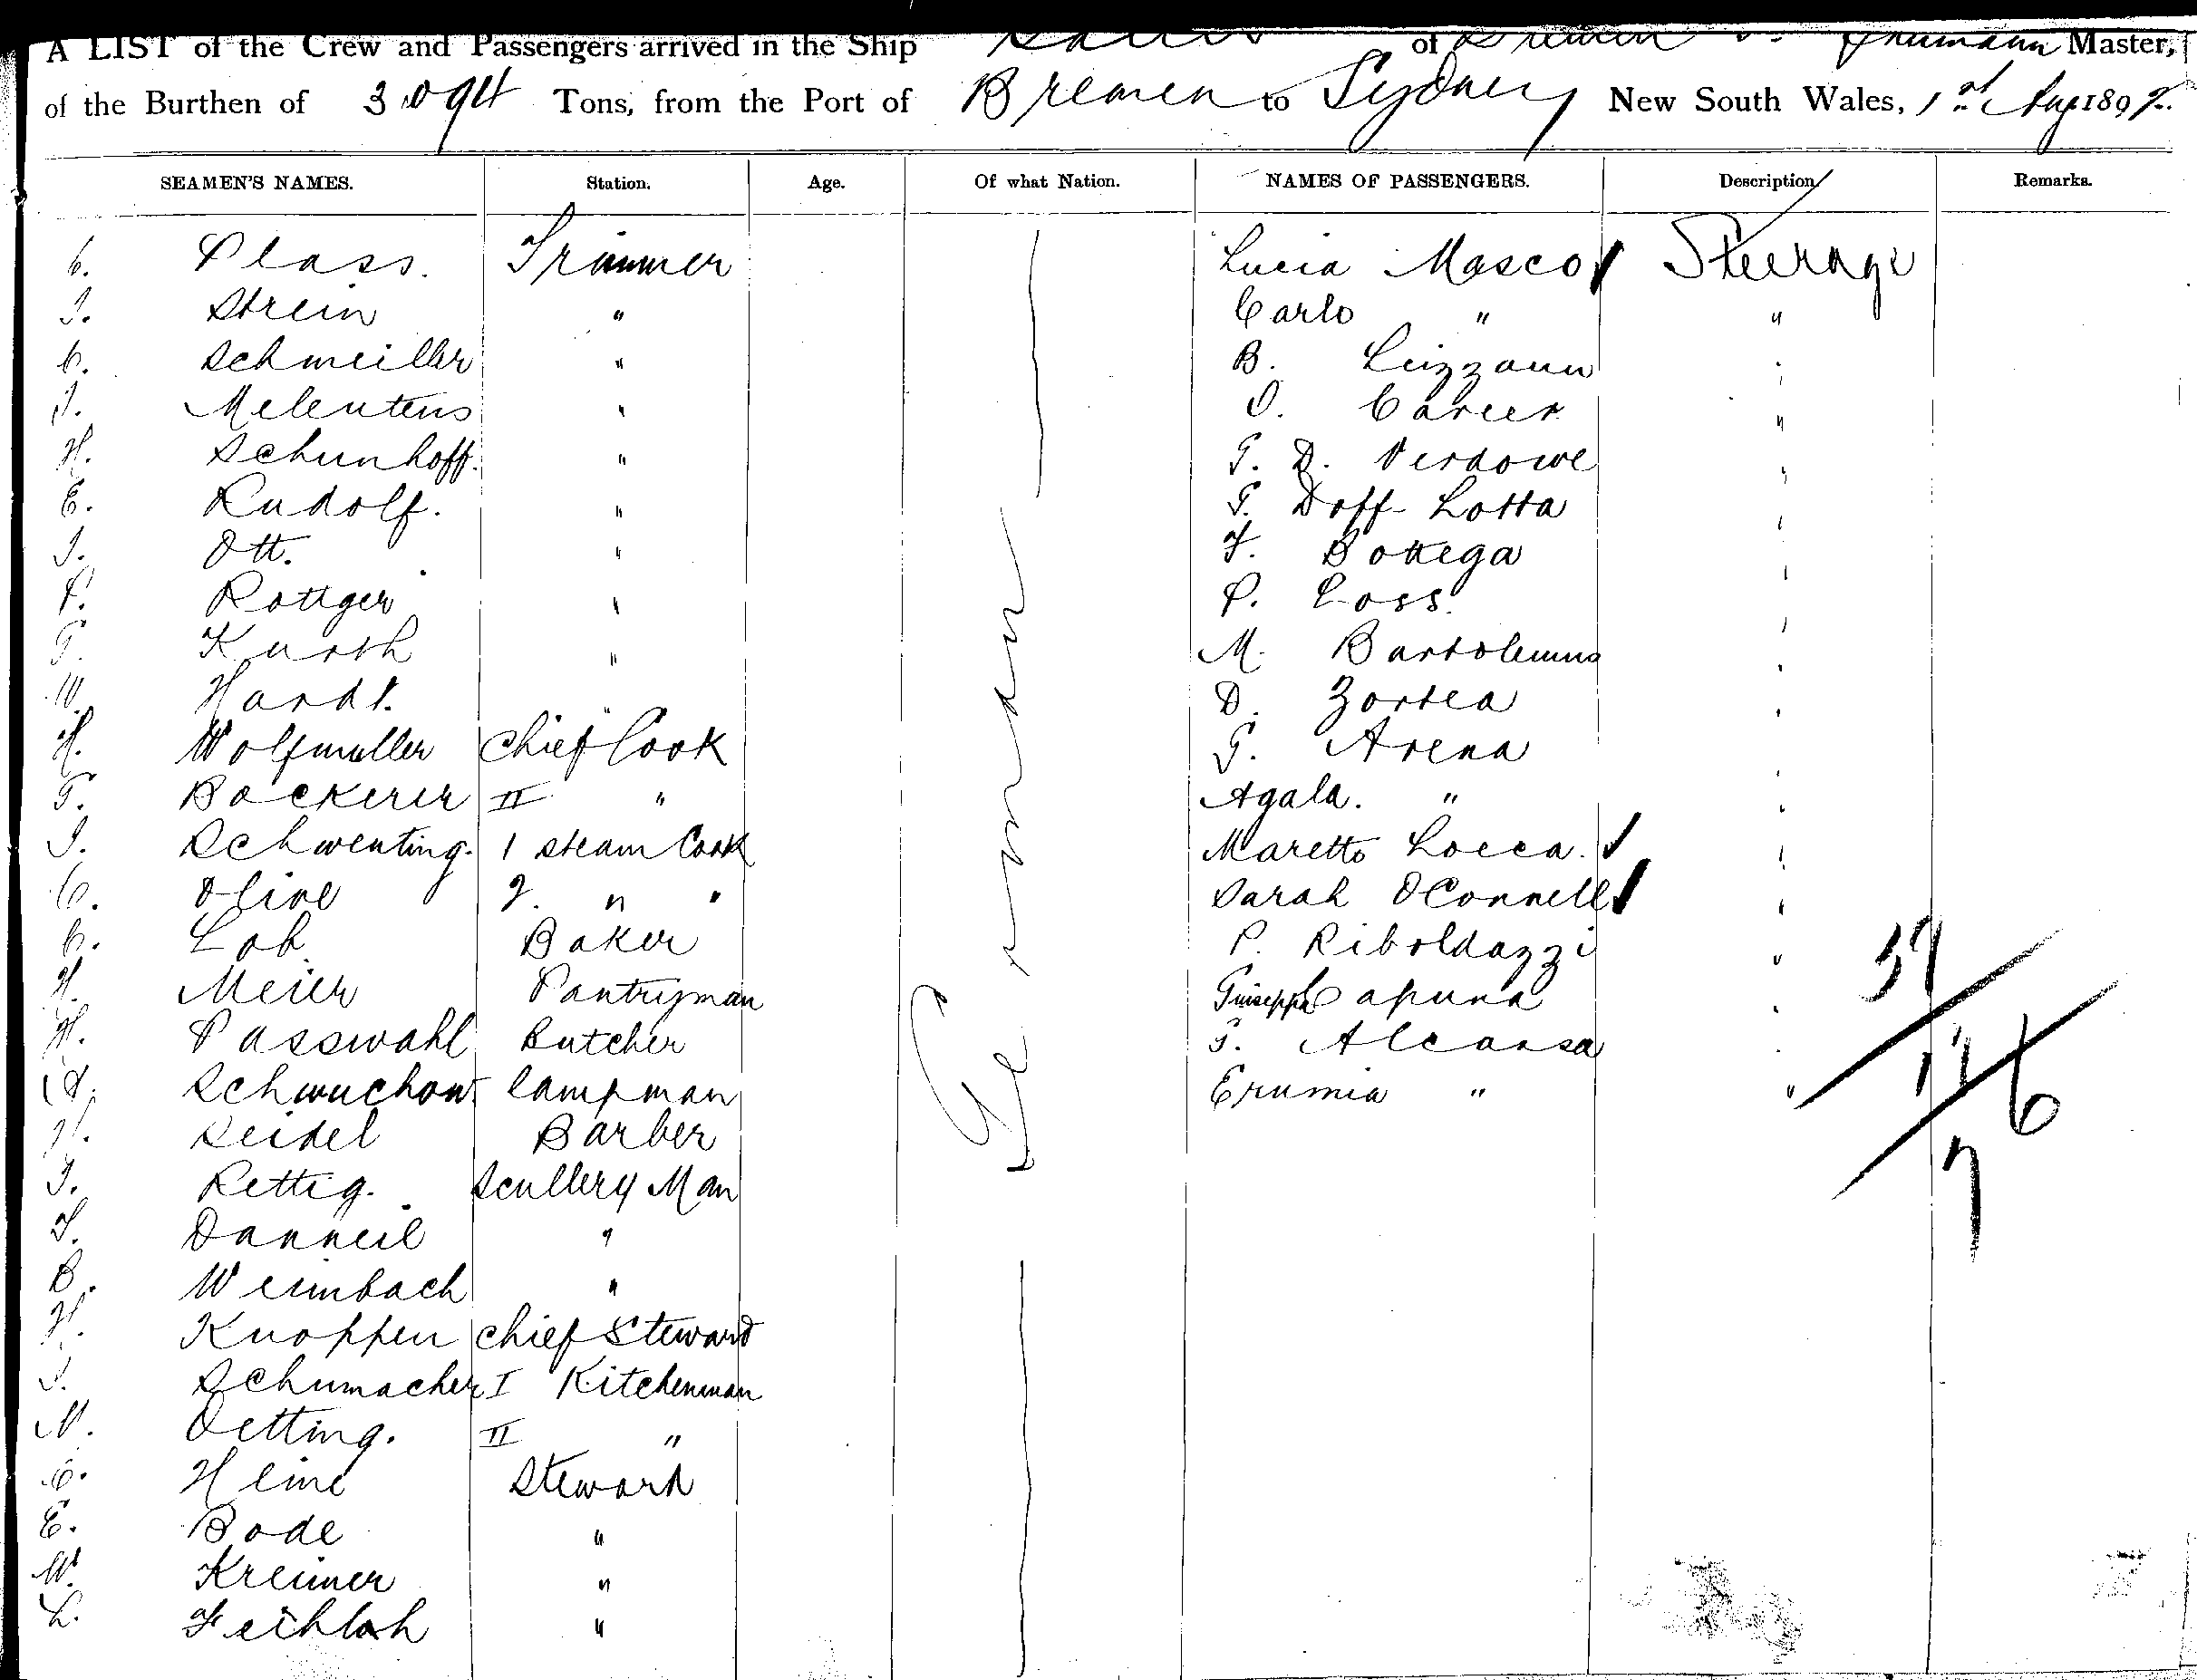 A LIST of the Crew and Passengers arrived in the Ship of Bremen Master,
of the Burthen of 3094 Tons, from the Port of Bremen to Sydney New South Wales, 1st Aug 1897.
SEAMEN'S NAMES. Station. Age. Of what Nation. NAMES OF PASSENGERS. Description Remarks.
C. Plass. Trimmer Lucia Masco Steerage
J. Strein " Carlo " "
C. Schmeiller " B. Luzzann
J. Meleutens " O. Career "
H. Schunhoff. " G. D. Verdowe "
E. Rudolf. " G. Doff-Lotta "
J. Ott. " F. Bottega "
F. Rottger " P. Loss. "
G. Kurth " M. Bartolemus "
W. Hardt. " D. Zortea "
H. Wolfmuller Chief Cook G. Arena "
G. Bockerer II " Agala. " "
J. Schwenting. 1 Steam Cook Maretto Locca. "
C. Olive 2. " " Sarah OConnell "
C. Lob. Baker P. Riboldazzi "
H. Meier Pantryman Guiseppe Capuna "
H. Passwahl Butcher G. Alcarsa "
A. Schwuchow Lampman Erumia " "
H. Seidel Barber
J. Rettig. Scullery Man
F. Danneil "
B. Weimbach "
H. Knoppen Chief Steward
J. Schumacher I Kitchenman
N. Oetting. II "
C. Heine Steward
E. Bode "
W. Kreimer "
L. Feihloh "
German
39
17
6
7